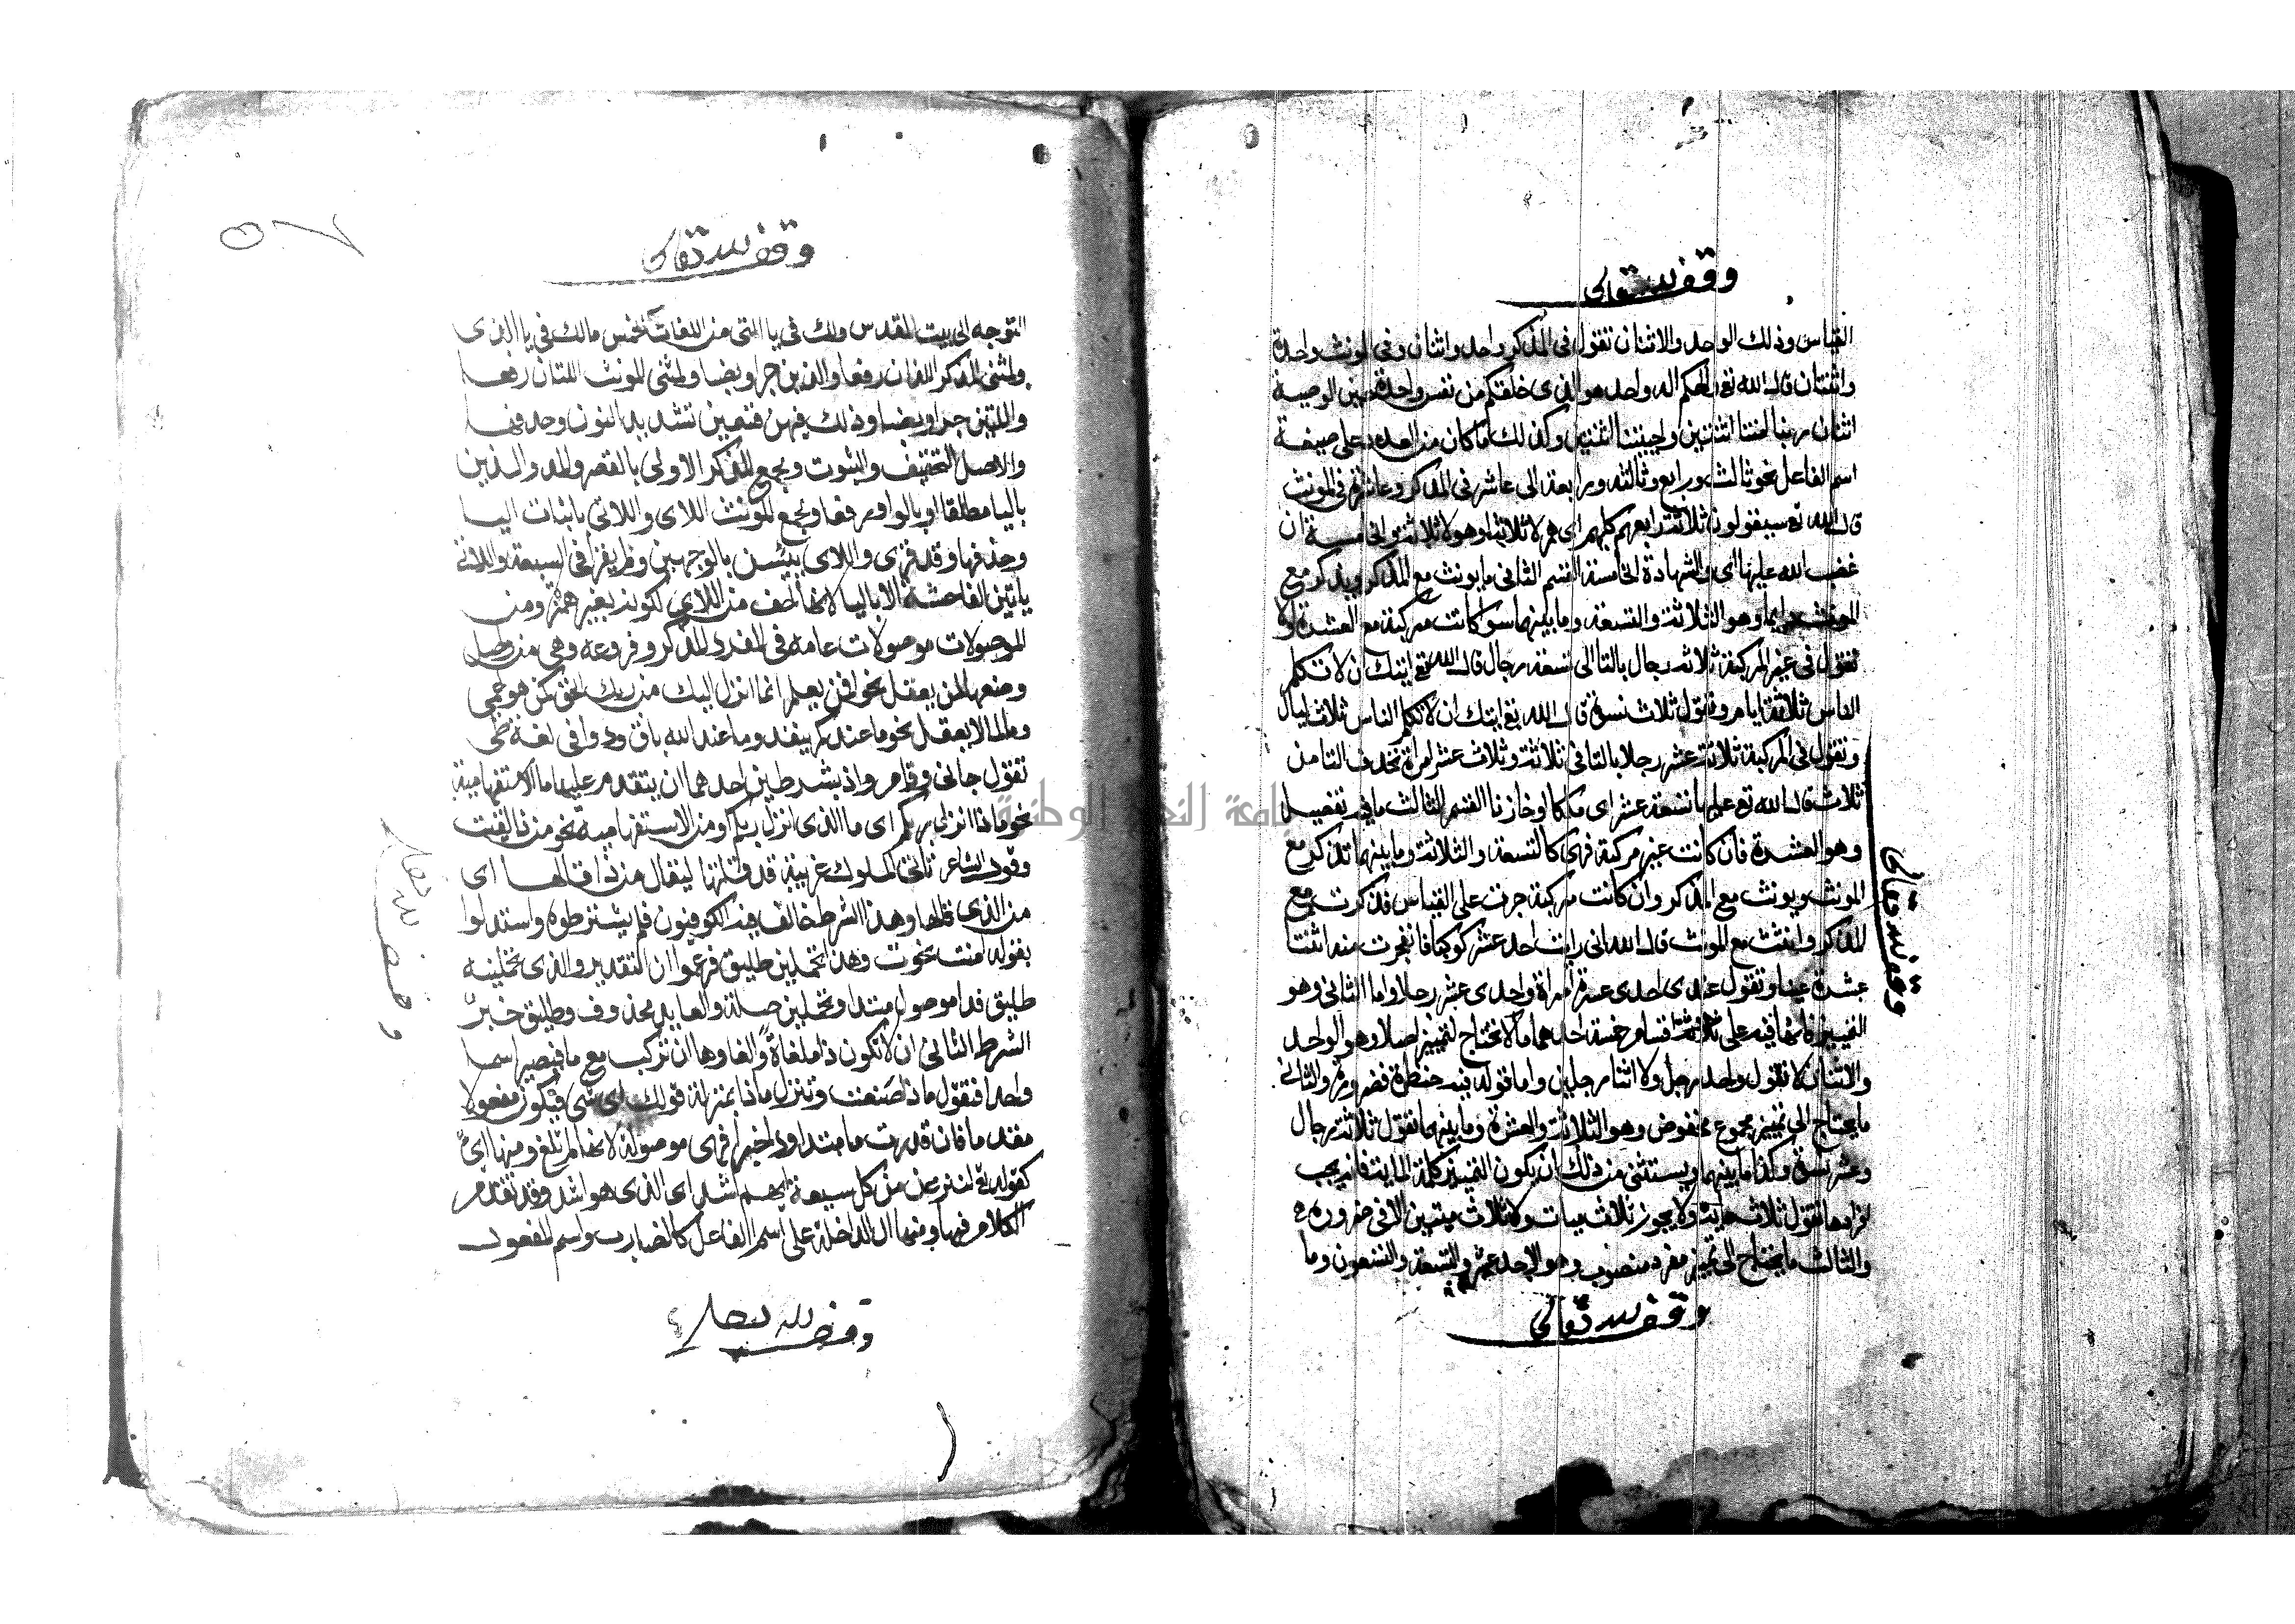 وقف لله تعالى
القياس وذلك الواحد والاثنان تقول في المذكر واحد واثنان وفي المونث واحدة
واثنتان قال الله تع والهكم اله واحد هو الذى خلقكم من نفس واحدة حين الوصية
اثنان ربنا امتنا اثنتين واحييتنا اثنتين وكذلك ما كان من العدد على صيغة
اسم الفاعل نحو ثالث ورابع وثالثة ورابعة الى عاشر في المذكر وعاشرة في المونث
قال الله تع سيقولون ثلاثة رابعهم كلبهم اى هم لا ثلاثة او هولا ثلاثة والخامسة ان
غضب الله عليها اى والشهادة الخامسة القسم الثاني ما يونث مع المذكر ويذكر مع
المونث دايما وهو الثلاثة والتسعة وما بينهما سوا كانت مركبة مع العشرة او لا
تقول في غير المركبة ثلاثة رجال بالتا الى تسعة رجال قال الله تع ايتك ان لا تكلم
الناس ثلاثة ايام وتقول ثلاث نسوة قال الله تع ايتك ان لا تكلم الناس ثلاث ليال
وتقول في المركبة ثلاثة عشر رجلا بالتا في ثلاثة وثلاث عشر امراة بحذف التا من
ثلاث قال الله تع عليها تسعة عشر اى ملكا او خازنا القسم الثالث ما فيه تفصيل
وهو العشرة فان كانت غير مركبة فهي كالتسعة والثلاثة وما بينهما تذكر مع
المونث ويونث مع المذكر وان كانت مركبة جرت على القياس فذكرت مع
المذكر وانثت مع المونث قال الله اني رايت احد عشر كوكبا فانفجرت منه اثنتا
عشرة عينا وتقول عندى احدى عشرة امراة واحدى عشر رجلا واما الثاني وهو
التمييز فانها فيه على اقسام خمسة احدهما ما لا يحتاج لتمييز اصلا وهو الواحد
والاثنان لا تقول واحد رجل ولا اثنا رجلين واما قوله فيه حنظلة فضرورة والثاني
ما يحتاج الى تمييز مجموع مخفوض وهو الثلاثة والعشرة وما بينهما تقول ثلاثة رجال
وعشر نسوة وكذا ما بينهما ويستثنى من ذلك ان يكون التمييز كلمة الماية فانه يجب
افرادها تقول ثلاث ماية ولا يجوز ثلاث ميات ولا ثلاث ميين الا في ضرورة
والثالث ما يحتاج الى تمييز مفرد منصوب وهو الاحد عشر والتسعة والتسعون وما
وقف لله تعالى
وقف لله تعالى
وقف لله تعالى
التوجه الى بيت المقدس ولك في يا التى من اللغات الخمس مالك في يا الذى
ولمثنى المذكر اللذان رفعا والذين جرا ونصبا ولمثنى المونث اللتان رفعا
واللتين جرا ونصبا وذلك فيهن تشديد النون وحذفها
والاصل التخفيف والثبوت ولجمع المذكر الاولى بالقصر والمد والذين
باليا مطلقا او بالواو رفعا ولجمع المونث اللاى واللاتي باثبات اليا
وحذفها وقد قرى واللاى يئسن بالوجهين ولم يقرا في السبعة واللاتي
ياتين الفاحشة الا باليا لانها اخف من اللاي لكونه بغير همزة ومن
الموصولات موصولات عامه في المفرد المذكر وفروعه وهي من واصل
وضعها لمن يعقل نحو افمن يعلم انما انزل اليك من ربك الحق كمن هو اعمى
وما لما لا يعقل نحو ما عندكم ينفد وما عند الله باق وذوا في لغة طى
تقول جاني ذو قام وذا بشرطين احدهما ان يتقدم عليها ما الاستفهامية
نحو ماذا انزل ربكم اى ما الذى انزل ربكم ومن الاستفهامية نحو من ذا لقيت
وقول الشاعر تاتي الملوك غريبة قد قلتها ليقال من ذا قالها اى
من الذى قالها وهذا الشرط خالف فيه الكوفيون فلم يشترطوه واستدلوا
بقوله امنت نجوت وهذا تحملين طليق فزعموا ان التقدير والذى تحملينه
طليق فذا موصول مبتدا وتحملين صلة والعايد محذوف وطليق خبر
الشرط الثاني ان لا تكون ذا ملغاة والغاوها ان تركب مع ما فيصير اسما
واحدا فتقول ماذا صنعت وتنزل ماذا بمنزلة قولك اى شى فتكون مفعولا
مقدما فان قدرت ما مبتدا وذا خبرا فهي موصولة لانها لم تلغ ومنها اىّ
كقوله تع لننزعن من كل شيعة ايهم اشد اى الذى هو اشد وقد تقدم
الكلام فيها ومنها ال الداخلة على اسم الفاعل كالضارب واسم المفعول
وقف لله تعالى
وقف لله تعالى
جامعة النجاح الوطنية